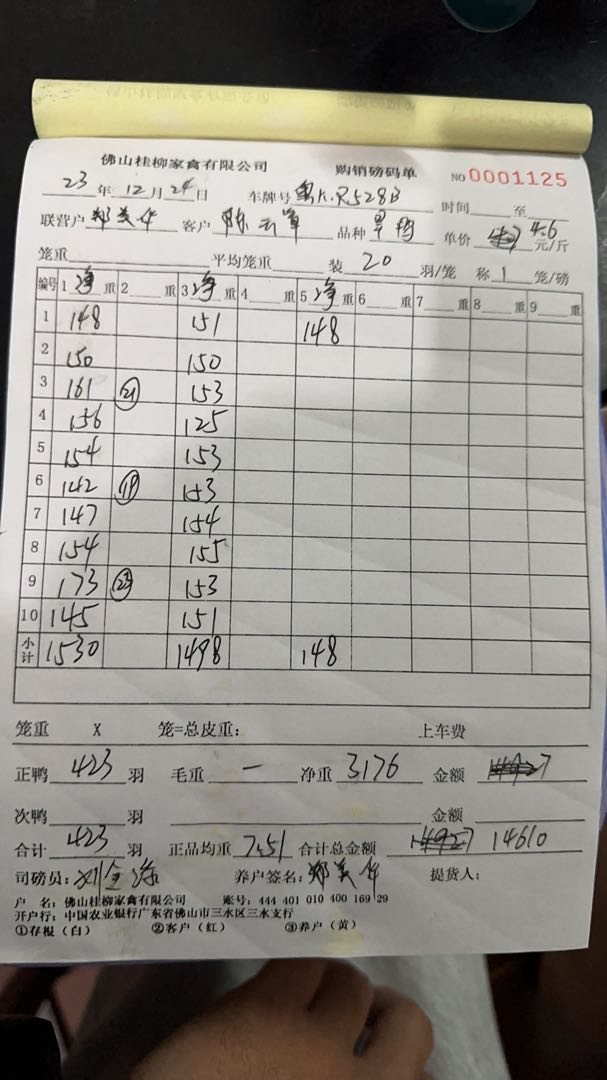 佛山桂柳家禽有限公司 购销磅码单 NO 0001125
23 年 12 月 24 日 车牌号 粤K.R528B 时间 至
联营户 郑美华 客户 陈云军 品种 单价 4.6 元/斤
笼重 平均笼重 装 20 羽/笼 称 1 笼/磅
编号 1 净 重 2 重 3 净 重 4 重 5 净 重 6 重 7 重 8 重 9 重
1 148 151 148
2 150 150
3 161 21 153
4 156 125
5 154 153
6 142 19 153
7 147 154
8 154 155
9 173 23 153
10 145 151
小计 1530 1498 148
笼重 X 笼=总皮重: 上车费
正鸭 423 羽 毛重 — 净重 3176 金额
次鸭 羽 金额
合计 423 羽 正品均重 7.51 合计总金额 14610
司磅员: 养户签名: 郑美华 提货人:
户 名: 佛山桂柳家禽有限公司 账号: 444 401 010 400 169 29
开户行: 中国农业银行广东省佛山市三水区三水支行
①存根(白) ②客户(红) ③养户(黄)